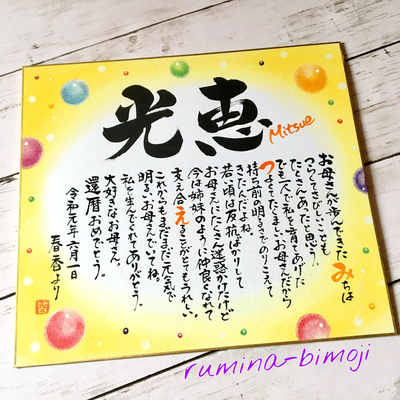 光恵
Mitsue
お母さんが歩んできたみちは
つらくてさびしいことも
たくさんあったと思う。
でも一人で私を育てあげた
つよくてたくましいお母さんだから
持ち前の明るさでのりこえて
きたんだよね。
若い頃は反抗ばかりして
お母さんにたくさん迷惑かけたけど
今は姉妹のように仲良くなれて
支え合えることがとてもうれしい。
これからもまだまだ元気で
明るいお母さんでいてね。
私を生んでくれてありがとう。
大好きなお母さん。
還暦おめでとう。
令和元年六月一日
春香より
rumina-bimoji